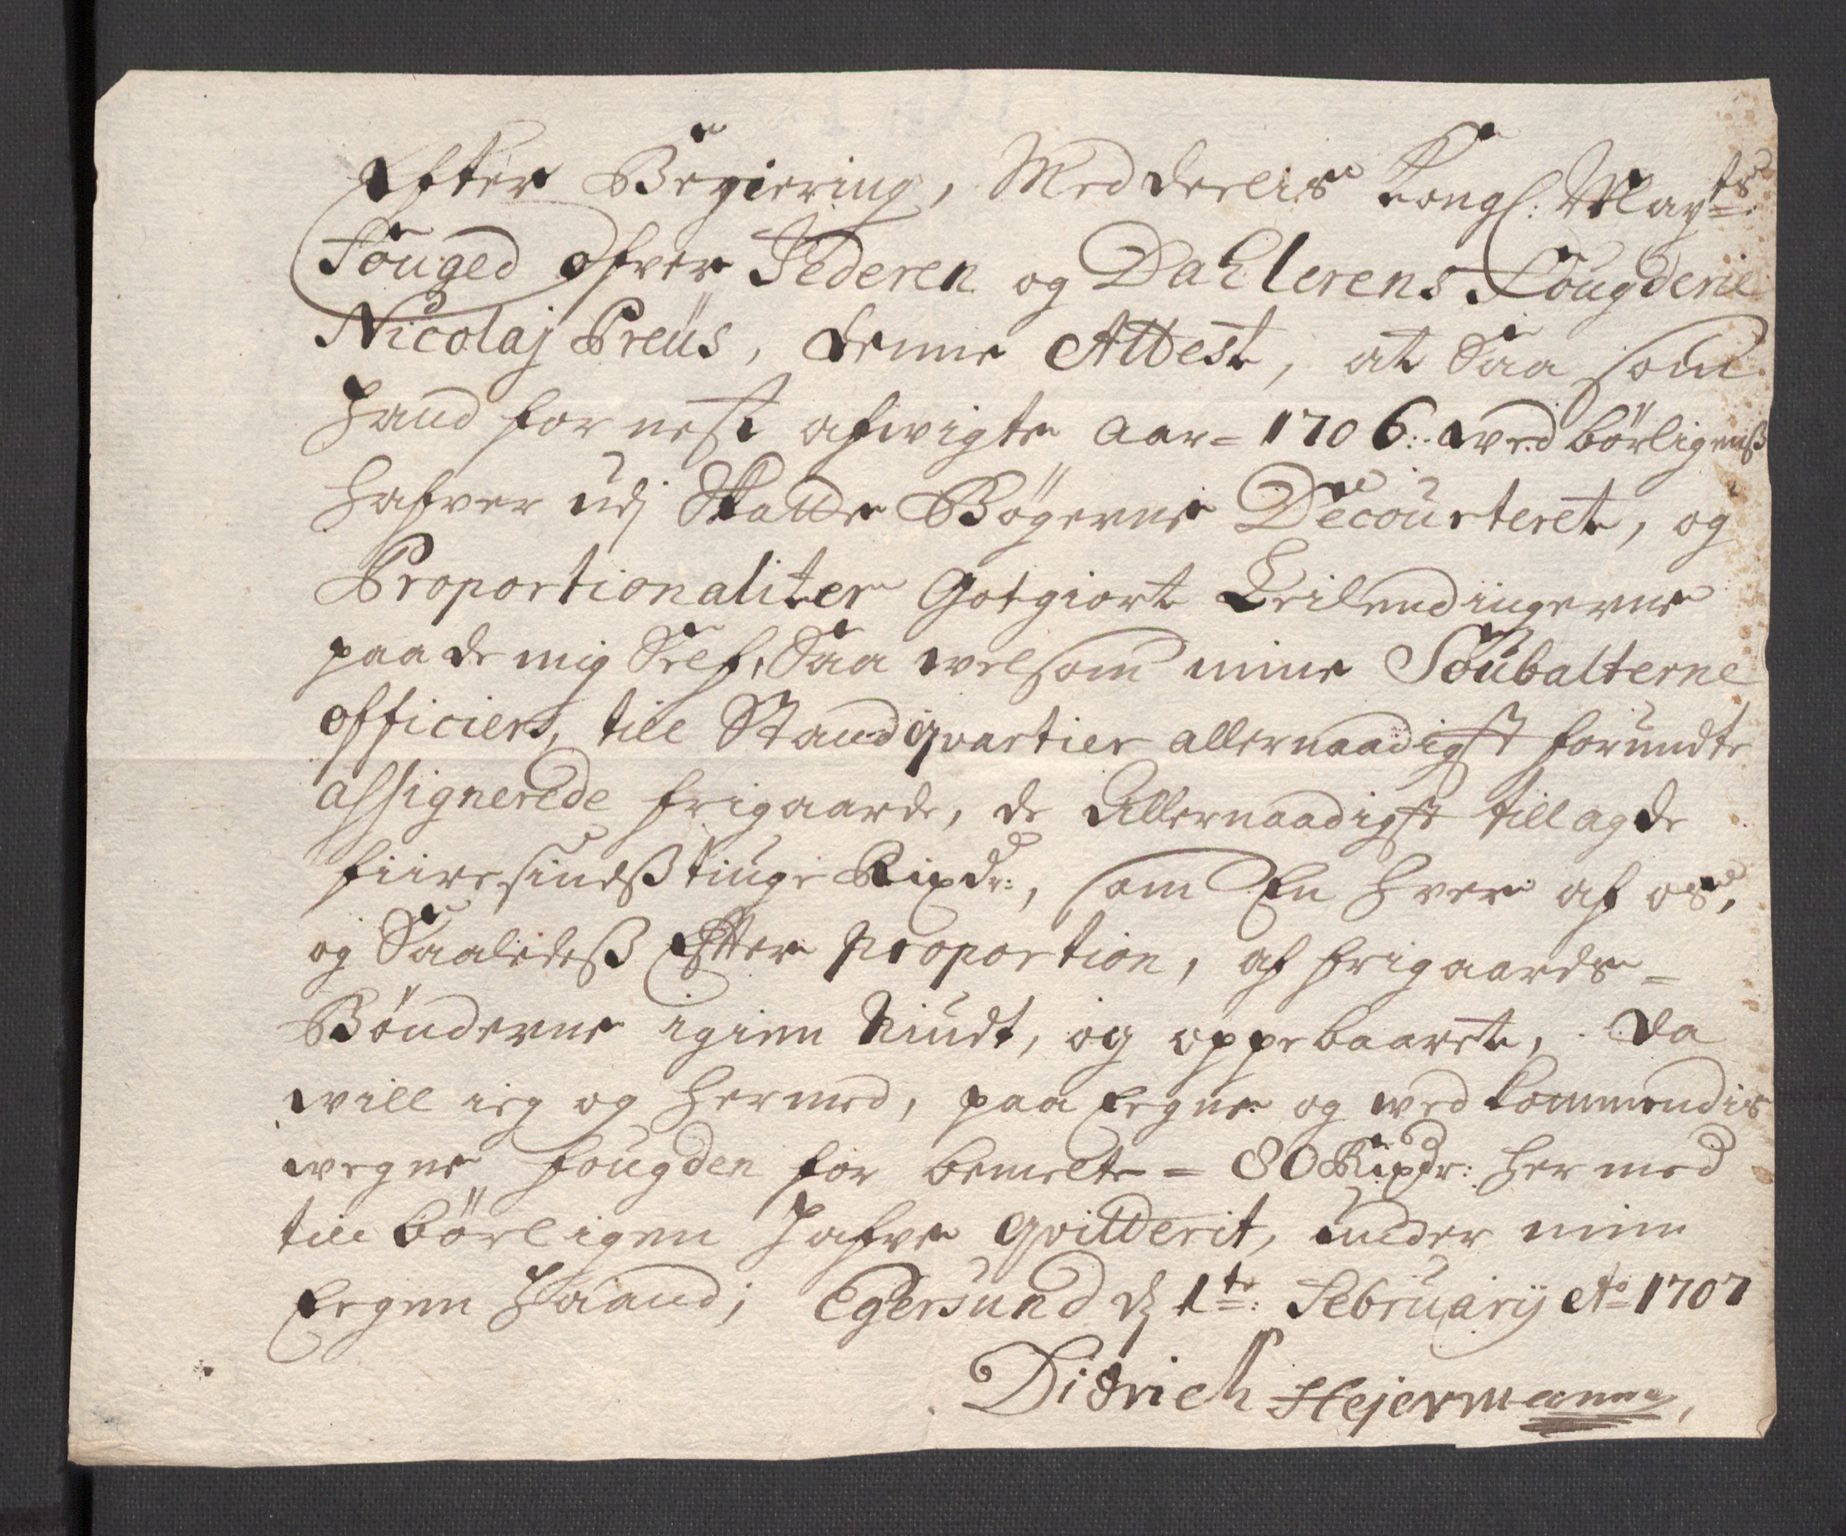 Efter Begiering, Meddeelis Kongl: Mayts:
Fouged ofver Jederen og Dahlerens Fougderie
Nicolaj Preüs, denne Attest, at Saa som
Hand for nest afvigte Aar = 1706: vedbørligenß
hafver udj Skatte Bøgerne Decourteret, og
Proportionaliter Gotgiort Leilendingerne
paa de mig Self, Saa velsom mine Soubalterne
officiers, till Standqvartier allernaadigst forundte
assignerede frigaarde, de Allernaadigst tillagde
fiiresindstiuge Rixdr:, som En hver af os,
og Saaledeß Efter proportion, af frigaards=
Bønderne igien Niudt, og oppebaaret, da
will ieg og hermed, paa Eegne og vedkommendis
vegne fougden for bemelte = 80 Rixdr: hermed
tilbørligen Hafve qvitterit, under min
Eegen Haand; Egersund d 1te: Februarij Ao 1707
Didrich Hejermann